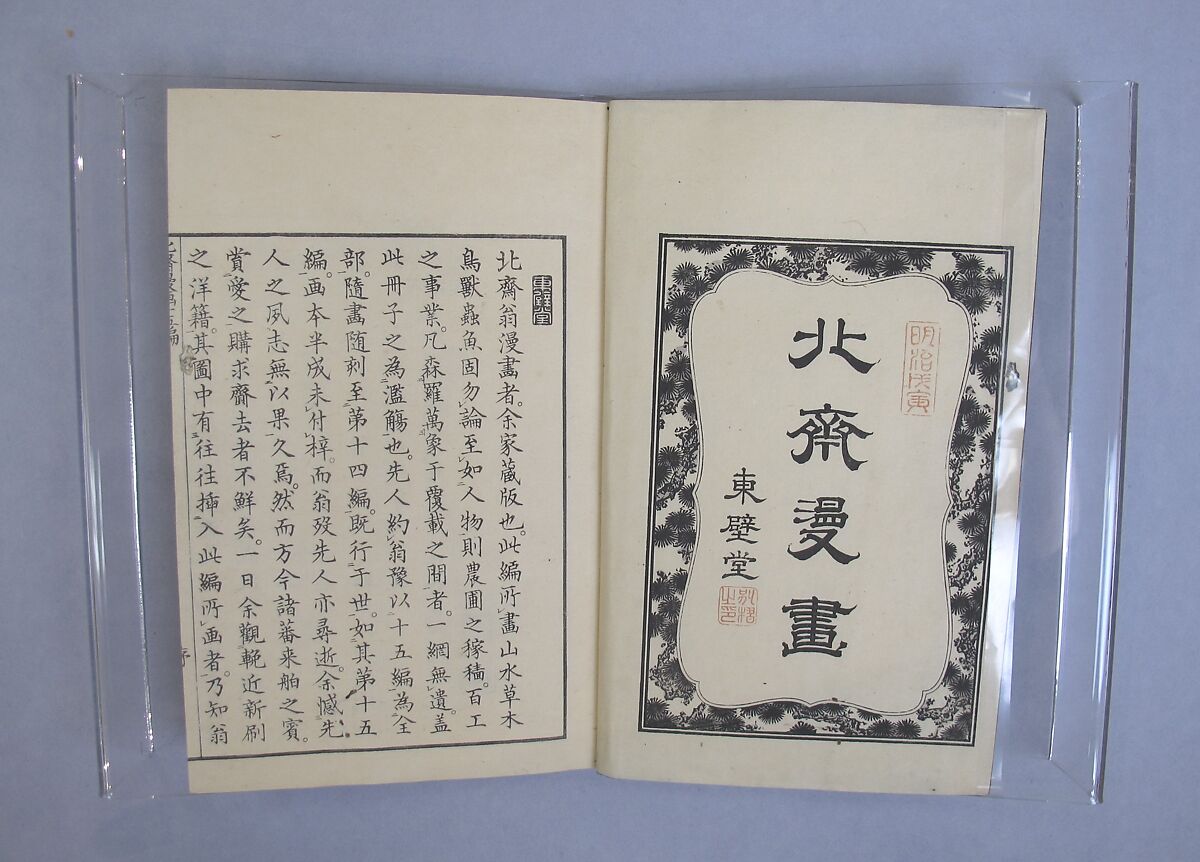 明治戊寅
北齋漫畫
東壁堂
東壁堂
北齋翁漫畫者。余家蔵版也。此編所畫山水草木
鳥獸蟲魚固勿論至如人物則農圃之稼穡。百工
之事業。凡森羅萬象于覆載之間者。一網無遺。蓋
此冊子之為濫觴也。先人約翁豫以十五編為全
部。隨畫随刻至第十四編。既行于世。如其第十五
編。画本半成未付梓。而翁歿先人亦尋逝。余憾先
人之夙志無以果久焉。然而方今諸蕃来舶之賓。
賞愛之購求齋去者不鮮矣。一日余觀輓近新刷
之洋籍。其圖中有往往挿入此編所画者。乃知翁
序